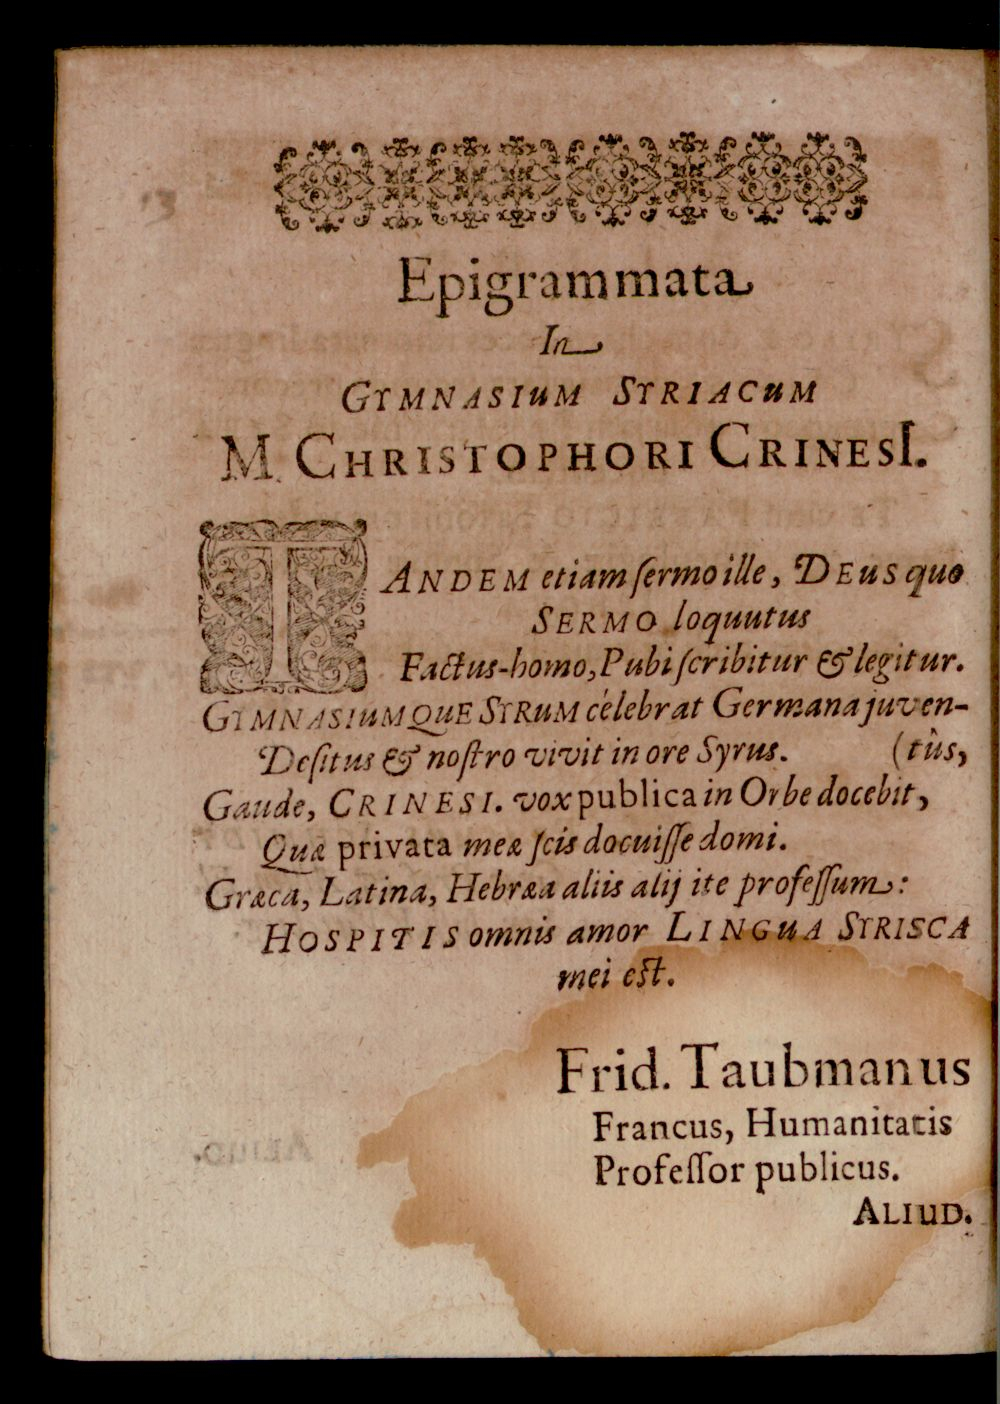 Epigrammata
In
GYMNASIUM SYRIACUM
M. CHRISTOPHORI CRINESI.
TANDEM etiam ſermo ille, DEUS quo
SERMO loquutus
Factus-homo, Pubi ſcribitur & legitur.
GYMNASIUMQUE SYRUM célebrat Germana juven-
Deſitus & noſtro vivit in ore Syrus. (tûs,
Gaude, CRINESI. vox publica in Orbe docebit,
Quæ privata meæ ſcis docuiſſe domi.
Græca, Latina, Hebræa aliis alij ite profeſſum:
HOSPITIS omnis amor LINGUA SYRISCA
mei eſt.
Frid. Taubmanus
Francus, Humanitatis
Profeſſor publicus.
ALIUD.